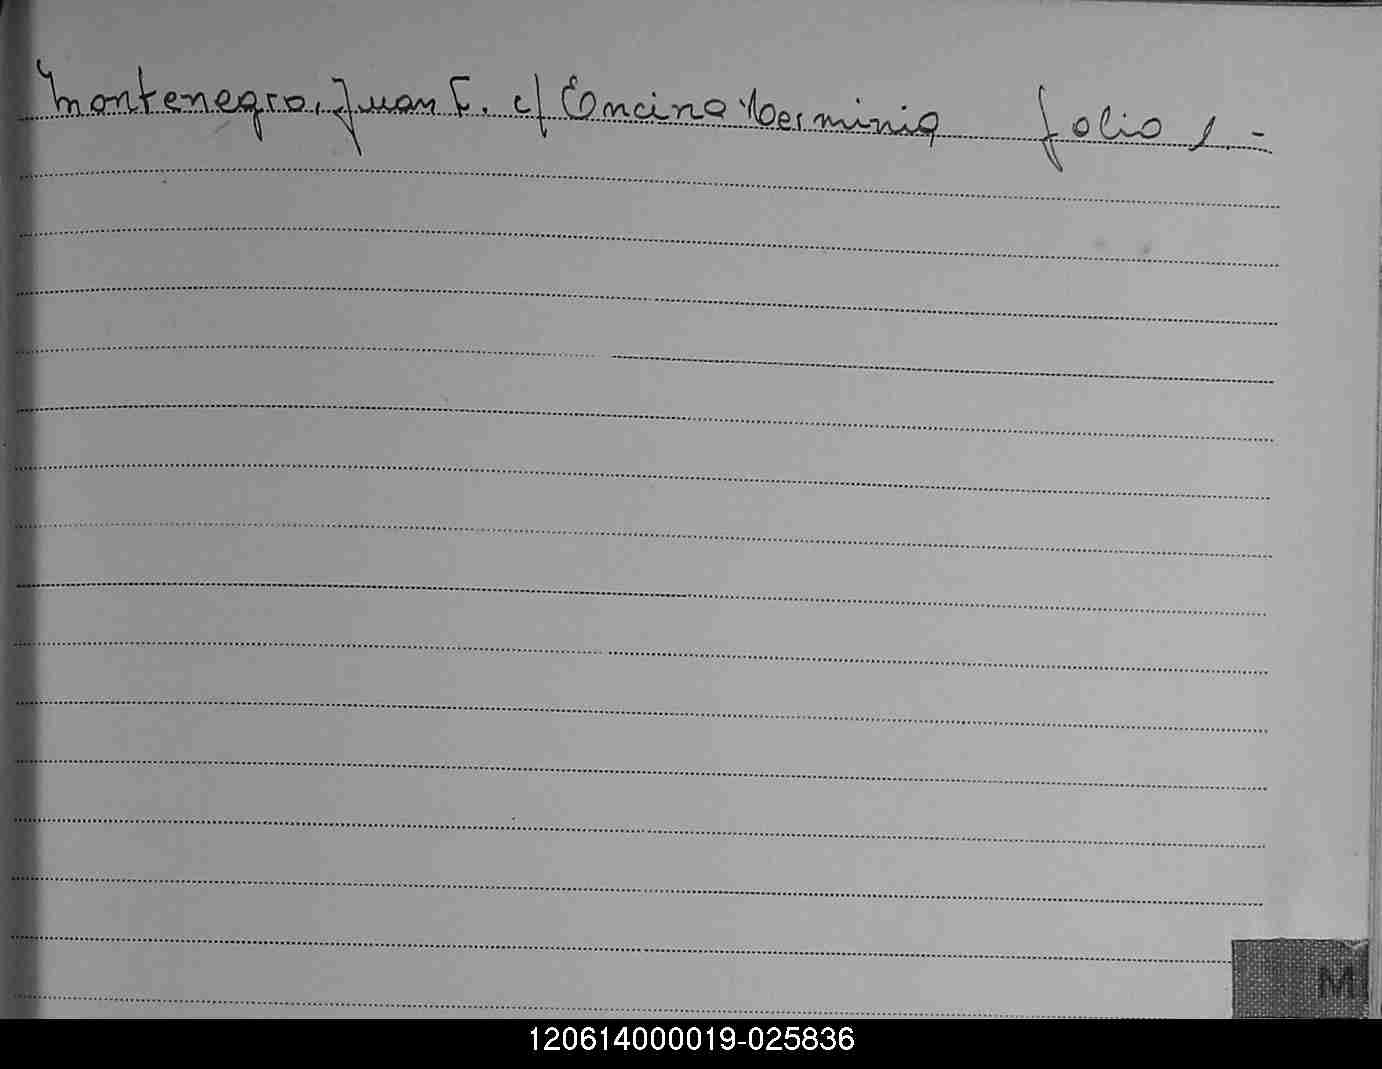 Montenegro, Juan F. c/ Encina Herminia folio 1.-
M
120614000019-025836